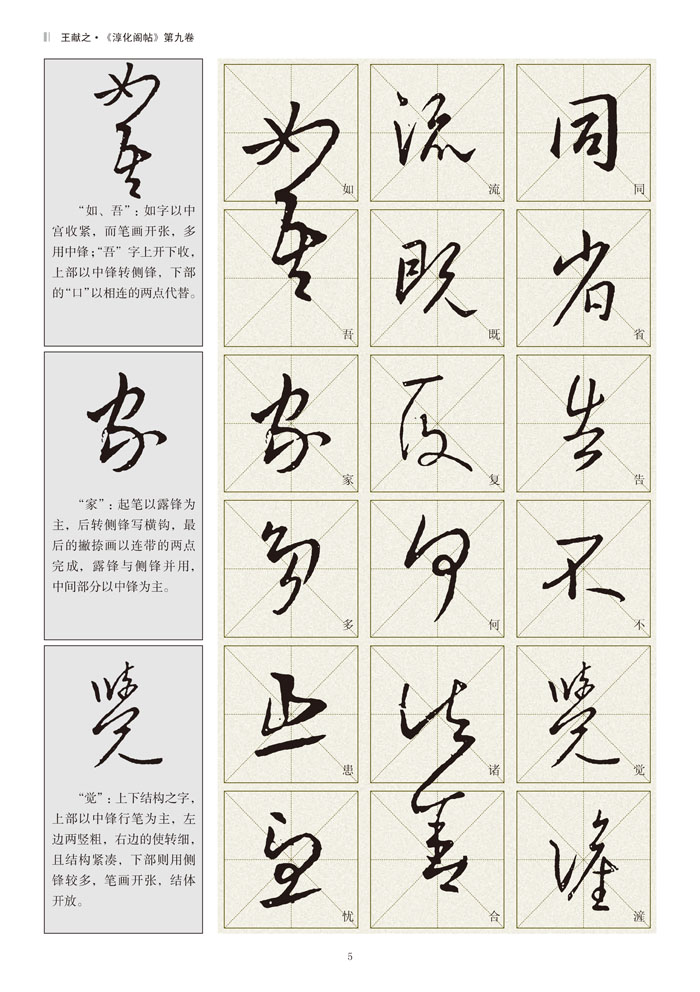 王献之·《淳化阁帖》第九卷
“如、吾”：如字以中
宫收紧，而笔画开张，多
用中锋；“吾”字上开下收，
上部以中锋转侧锋，下部
的“口”以相连的两点代替。
“家”：起笔以露锋为
主，后转侧锋写横钩，最
后的撇捺画以连带的两点
完成，露锋与侧锋并用，
中间部分以中锋为主。
“觉”：上下结构之字，
上部以中锋行笔为主，左
边两竖粗，右边的使转细，
且结构紧凑，下部则用侧
锋较多，笔画开张，结体
开放。
同
省
告
不
觉
漼
流
既
复
何
诸
合
如
吾
家
多
患
忧
5